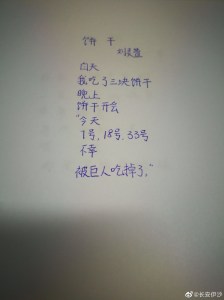 饼干
白天
我吃了三块饼干
晚上
饼干开会
“今天
1号,18号,33号
不幸
被巨人吃掉了。”
@长安伊沙